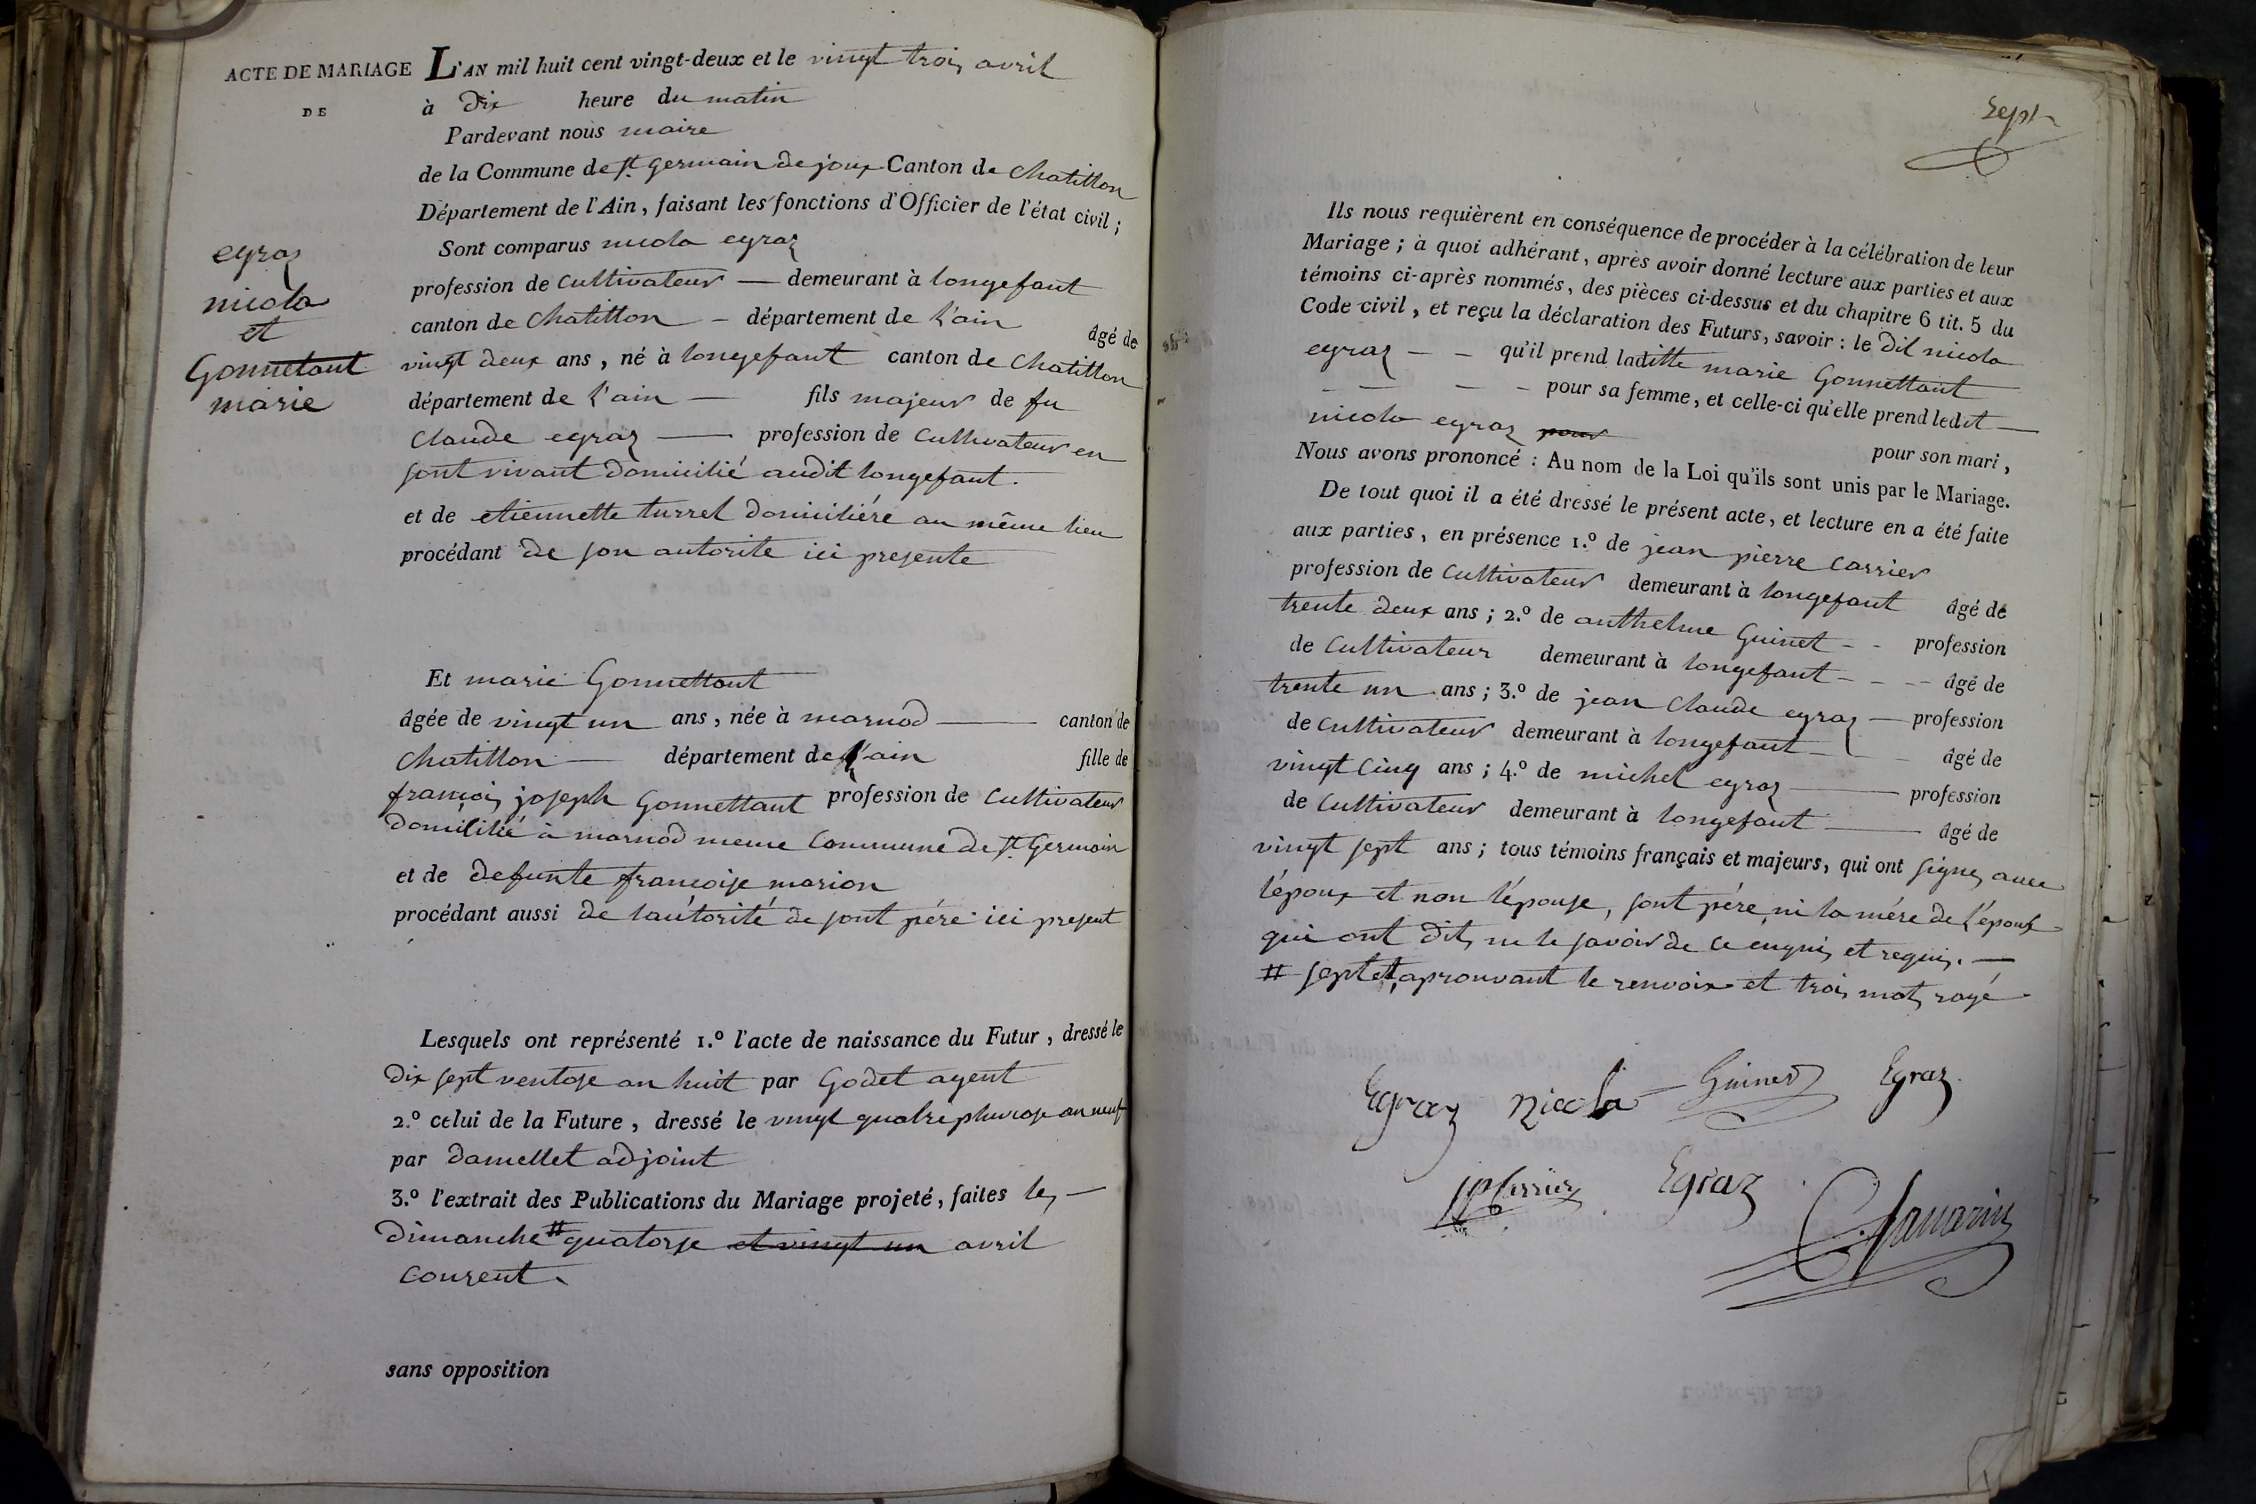 ACTE DE MARIAGE
DE
egraz
nicola
et
Gonnetant
marie
L'AN mil huit cent vingt-deux et le vingt trois avril
à Dix heure du matin
Pardevant nous maire
de la Commune de st Germain de joux Canton de Chatillon
Département de l'Ain, faisant les fonctions d'Officier de l'état civil;
Sont comparus nicola egraz
profession de Cultivateur — demeurant à longefant
canton de Chatillon — département de l'ain âgé de
vingt deux ans, né à longefant canton de Chatillon
département de l'ain — fils majeur de fu
Claude egraz — profession de Cultivateur en
sont vivant domicilié audit longefant.
et de etiennette turrel domiciliére au même lieu
procédant de son autorite ici presente
Et marie Gonnettant
âgée de vingt un ans, née à marnod — canton de
Chatillon — département de l'ain fille de
françois joseph Gonnettant profession de Cultivateur
domicilié à marnod meme Commune de st Germain
et de defunte francoise marion
procédant aussi de l'autorité de sont pére ici present
Lesquels ont représenté 1.º l'acte de naissance du Futur, dressé le
dix sept ventose an huit par Godet agent
2.º celui de la Future, dressé le vingt quatre pluviose an neuf
par damellet adjoint
3.º l'extrait des Publications du Mariage projeté, faites les —
dimanche # quatorse et vingt un avril
courent.
sans opposition
sept
Ils nous requièrent en conséquence de procéder à la célébration de leur
Mariage; à quoi adhérant, après avoir donné lecture aux parties et aux
témoins ci-après nommés, des pièces ci-dessus et du chapitre 6 tit. 5 du
Code civil, et reçu la déclaration des Futurs, savoir: le dit nicola
egraz — — qu'il prend laditte marie Gonnettant
— — — — pour sa femme, et celle-ci qu'elle prend ledit —
nicola egraz pour pour son mari,
Nous avons prononcé: Au nom de la Loi qu'ils sont unis par le Mariage.
De tout quoi il a été dressé le présent acte, et lecture en a été faite
aux parties, en présence 1.º de jean pierre Carrier
profession de Cultivateur demeurant à longefant âgé de
trente deux ans; 2.º de anthelme Guinet — — profession
de Cultivateur demeurant à longefant — — — âgé de
trente un ans; 3.º de jean Claude egraz — profession
de Cultivateur demeurant à longefant — âgé de
vingt cinq ans; 4.º de michel egraz — profession
de Cultivateur demeurant à longefant — âgé de
vingt sept ans; tous témoins français et majeurs, qui ont signés avec
l'époux et non l'épouse, sont pére, ni la mére de l'époux
qui ont dits ne le savoir de ce enquis et requis. —
# sept et, aprouvant le renvoix et trois mots rayé
Egraz nicola Guinet Egraz
JP Carrier Egraz